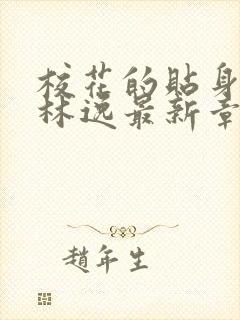 校花的貼身
林逸最新章
趙年生